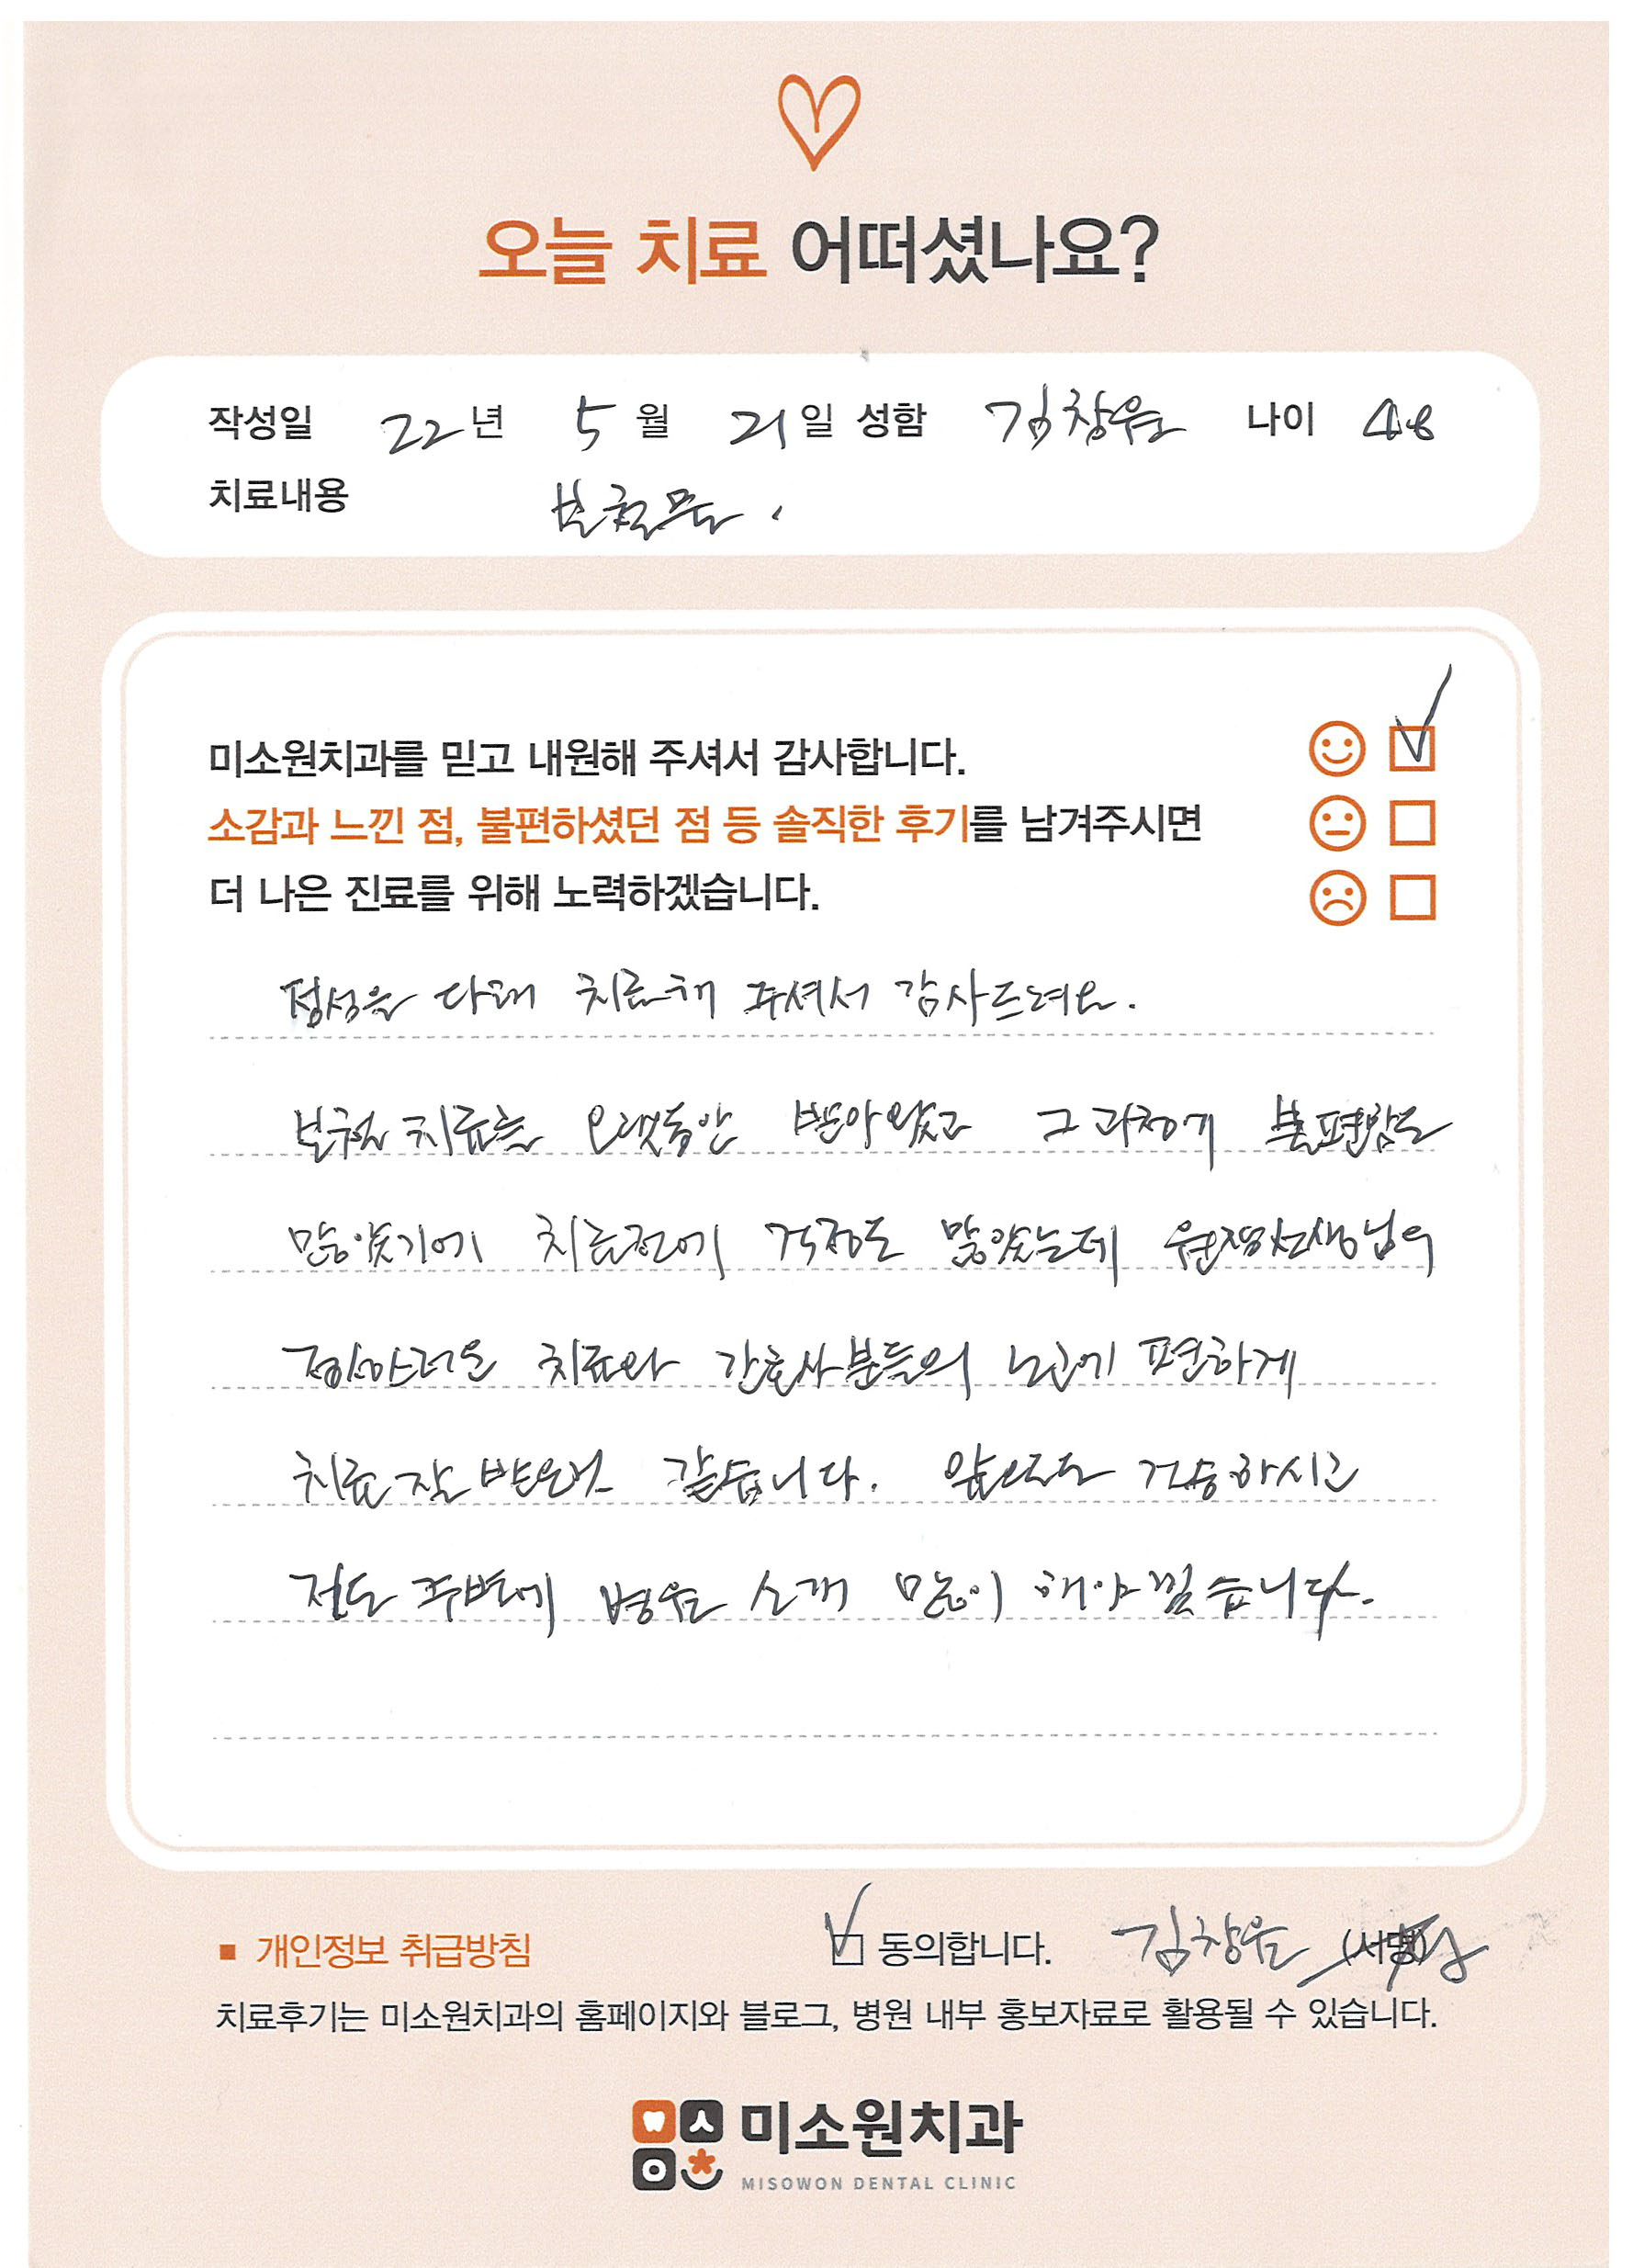 오늘 치료 어떠셨나요?
작성일 22년 5월 21일 성함 김창윤 나이 48
치료내용 보철물.
미소원치과를 믿고 내원해 주셔서 감사합니다.
소감과 느낀 점, 불편하셨던 점 등 솔직한 후기를 남겨주시면
더 나은 진료를 위해 노력하겠습니다.
정성을 다해 치료해 주셔서 감사드려요.
보철 치료를 오랫동안 받아왔고 그 과정에 불편함도
많았기에 치료전에 걱정도 많았는데 원장선생님의
치료와 간호사분들의 편하게
치료 잘 받은것 같습니다. 앞으로도 건승하시고
저도 주변에 병원 소개 많이 해야 겠습니다.
■ 개인정보 취급방침 동의합니다. 김창윤 (서명)
치료후기는 미소원치과의 홈페이지와 블로그, 병원 내부 홍보자료로 활용될 수 있습니다.
미소원치과
MISOWON DENTAL CLINIC